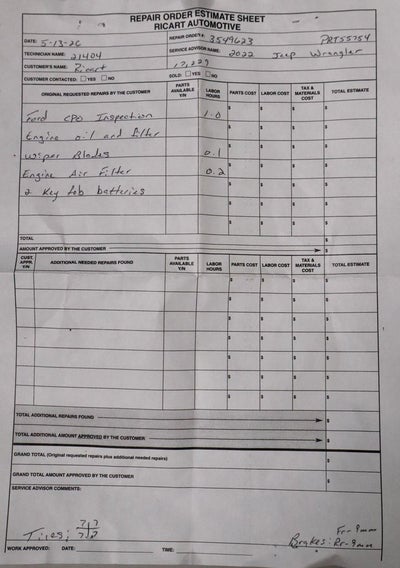 REPAIR ORDER ESTIMATE SHEET
RICART AUTOMOTIVE
DATE: 5-13-26 REPAIR ORDER#: 3549623 PRT55754
TECHNICIAN NAME: 21404 SERVICE ADVISOR NAME: 2022 Jeep Wrangler
CUSTOMER'S NAME: Ricart 17,229
CUSTOMER CONTACTED: ☐ YES ☐ NO SOLD: ☐ YES ☐ NO
ORIGINAL REQUESTED REPAIRS BY THE CUSTOMER PARTS AVAILABLE Y/N LABOR HOURS PARTS COST LABOR COST TAX & MATERIALS COST TOTAL ESTIMATE
Ford CPO Inspection 1.0 $ $ $ $
Engine oil and filter $ $ $ $
Wiper Blades 0.1 $ $ $ $
Engine Air Filter 0.2 $ $ $ $
2 Key fob batteries $ $ $ $
$ $ $ $
TOTAL $
AMOUNT APPROVED BY THE CUSTOMER $
CUST. APPR. Y/N ADDITIONAL NEEDED REPAIRS FOUND PARTS AVAILABLE Y/N LABOR HOURS PARTS COST LABOR COST TAX & MATERIALS COST TOTAL ESTIMATE
$ $ $ $
$ $ $ $
$ $ $ $
$ $ $ $
$ $ $ $
$ $ $ $
$ $ $ $
TOTAL ADDITIONAL REPAIRS FOUND $
TOTAL ADDITIONAL AMOUNT APPROVED BY THE CUSTOMER $
GRAND TOTAL (Original requested repairs plus additional needed repairs) $
GRAND TOTAL AMOUNT APPROVED BY THE CUSTOMER $
SERVICE ADVISOR COMMENTS:
7 7 Fr- 9mm
Tires: 7 7 Brakes: Rr- 9mm
WORK APPROVED: DATE: TIME: